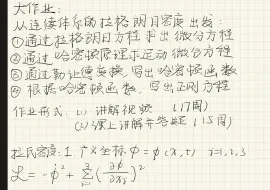 大作业:
从连续体系的拉格朗日密度出发:
①通过拉格朗日方程求出微分方程
②通过哈密顿原理求运动微分方程
③通过勒让德变换,写出哈密顿函数
④根据哈密顿函数,写出正则方程
作业形式:(1) 讲解视频 (17周)
(2) 课上讲解并答疑 (15周)
拉氏密度:1. 广义坐标 φ=φ(x_i,t) i=1,2,3
ℒ = -φ̇² + Σ_{i=1}^{3} (∂φ/∂x_i)²